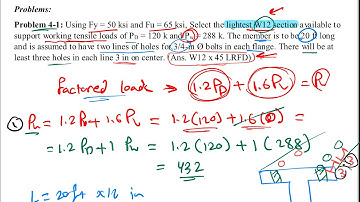 Problems:
Problem 4-1: Using Fy = 50 ksi and Fu = 65 ksi, Select the lightest W12 section available to
support working tensile loads of PD = 120 k and Pw = 288 k. The member is to be 20 ft long
and is assumed to have two lines of holes for 3/4-in Ø bolts in each flange. There will be at
least three holes in each line 3 in on center. (Ans. W12 x 45 LRFD)
Factored loads → 1.2PD + 1.6PL = Pu
① Pu = 1.2PD + 1.6PL = 1.2(120) + 1.6(0)
= 1.2PD + 1Pw = 1.2(120) + 1(288)
= 432
L = 20ft x12 in
3
3